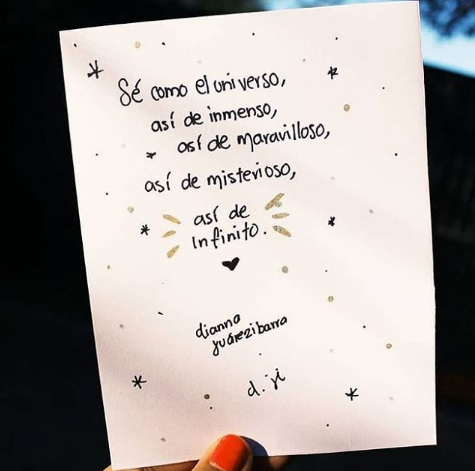 Sé como el universo,
así de inmenso,
así de maravilloso,
así de misterioso,
así de
infinito.
dianna
yuárezibarra
d. yi